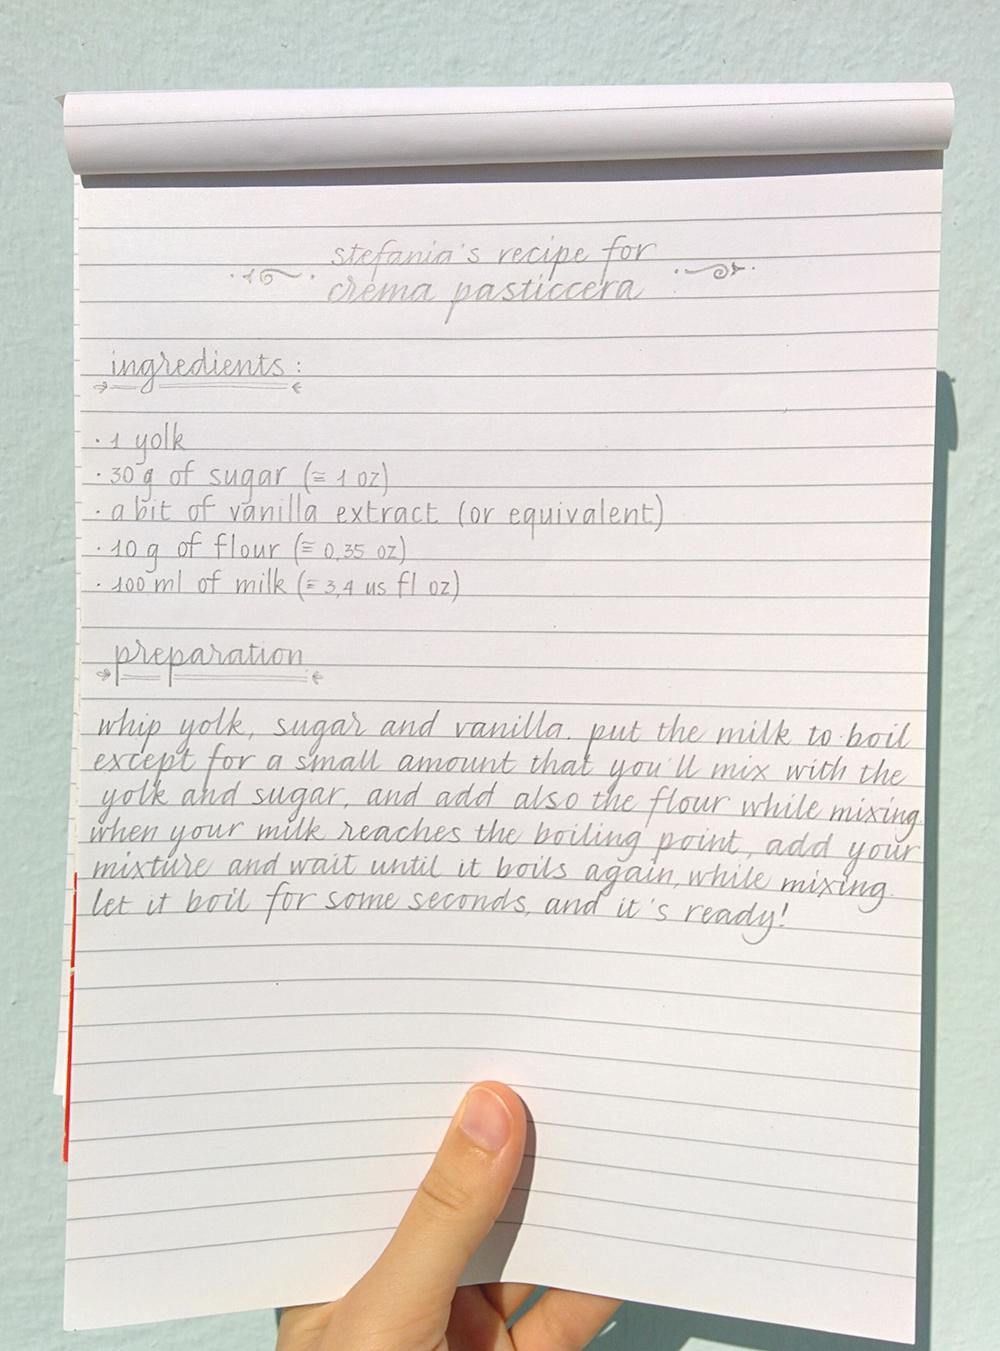 stefania's recipe for
crema pasticcera
ingredients:
· 1 yolk
· 30 g of sugar (≅ 1 oz)
· a bit of vanilla extract (or equivalent)
· 10 g of flour (≅ 0,35 oz)
· 100 ml of milk (≅ 3,4 us fl oz)
preparation
whip yolk, sugar and vanilla. put the milk to boil
except for a small amount that you'll mix with the
yolk and sugar, and add also the flour while mixing.
when your milk reaches the boiling point, add your
mixture and wait until it boils again, while mixing.
let it boil for some seconds, and it's ready!